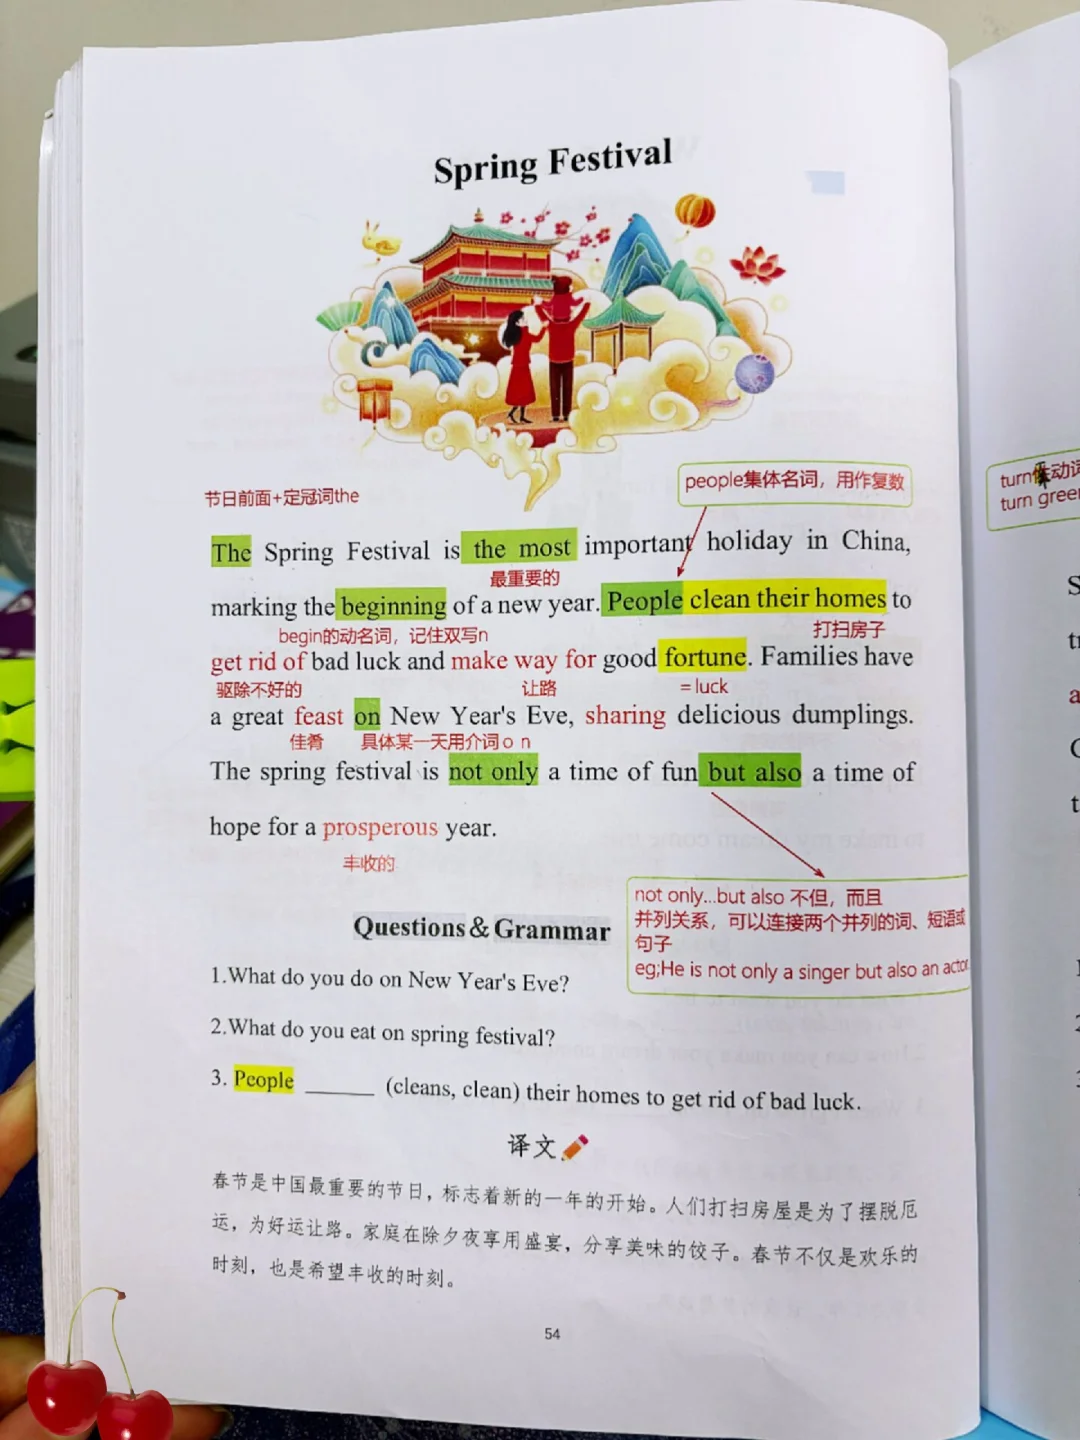 Spring Festival
people集体名词，用作复数
节日前面+定冠词the
The Spring Festival is the most important holiday in China,
最重要的
marking the beginning of a new year. People clean their homes to
begin的动名词，记住双写n
打扫房子
get rid of bad luck and make way for good fortune. Families have
驱除不好的
让路
=luck
a great feast on New Year's Eve, sharing delicious dumplings.
佳肴
具体某一天用介词on
The spring festival is not only a time of fun but also a time of
hope for a prosperous year.
丰收的
not only...but also 不但，而且
并列关系，可以连接两个并列的词、短语或
句子
eg;He is not only a singer but also an actor
Questions&Grammar
1.What do you do on New Year's Eve?
2.What do you eat on spring festival?
3. People ______ (cleans, clean) their homes to get rid of bad luck.
译文
春节是中国最重要的节日，标志着新的一年的开始。人们打扫房屋是为了摆脱厄
运，为好运让路。家庭在除夕夜享用盛宴，分享美味的饺子。春节不仅是欢乐的
时刻，也是希望丰收的时刻。
54
turn
turn green